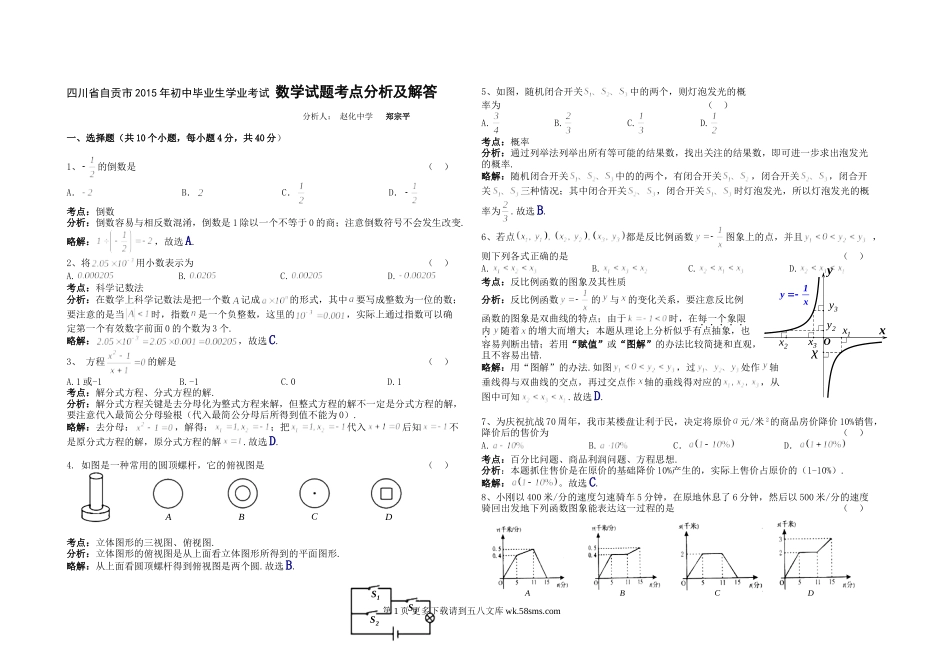 四川省自贡市 2015 年初中毕业生学业考试 数学试题考点分析及解答
分析人： 赵化中学 郑宗平
一、选择题（共 10 个小题，每小题 4 分，共 40 分）
1、-1/2 的倒数是 （ ）
A. -2 B. 2 C. 1/2 D. -1/2
考点：倒数
分析：倒数容易与相反数混淆，倒数是 1 除以一个不等于 0 的商；注意倒数符号不会发生改变.
略解：1÷(-1/2)=-2，故选 A.
2、将 2.05×10⁻³ 用小数表示为 （ ）
A. 0.000205 B. 0.0205 C. 0.00205 D. -0.00205
考点：科学记数法
分析：在数学上科学记数法是把一个数 A 记成 a×10ⁿ 的形式，其中 a 要写成整数为一位的数；
要注意的是当 |A|<1 时，指数 n 是一个负整数，这里的 10⁻³=0.001，实际上通过指数可以确
定第一个有效数字前面 0 的个数为 3 个.
略解：2.05×10⁻³=2.05×0.001=0.00205，故选 C.
3、 方程 (x²-1)/(x+1)=0 的解是 （ ）
A.1 或-1 B.-1 C.0 D.1
考点：解分式方程、分式方程的解.
分析：解分式方程关键是去分母化为整式方程来解，但整式方程的解不一定是分式方程的解，
要注意代入最简公分母验根（代入最简公分母后所得到值不能为 0）.
略解：去分母：x²-1=0，解得：x₁=1,x₂=-1；把 x₁=1,x₂=-1 代入 x+1 后知 x=-1 不
是原分式方程的解，原分式方程的解 x=1.故选 D.
4. 如图是一种常用的圆顶螺杆，它的俯视图是 （ ）
A B C D
考点：立体图形的三视图、俯视图.
分析：立体图形的俯视图是从上面看立体图形所得到的平面图形.
略解：从上面看圆顶螺杆得到俯视图是两个圆.故选 B.
S₁
S₂
5、如图，随机闭合开关 S₁、S₂、S₃ 中的两个，则灯泡发光的概
率为 （ ）
A. 3/4 B. 2/3 C. 1/3 D. 1/2
考点：概率
分析：通过列举法列举出所有等可能的结果数，找出关注的结果数，即可进一步求出泡发光
的概率.
略解：随机闭合开关 S₁、S₂、S₃ 中的的两个，有闭合开关 S₁、S₂，闭合开关 S₁、S₃，闭合开
关 S₂、S₃ 三种情况；其中闭合开关 S₁、S₃，闭合开关 S₂、S₃ 时灯泡发光，所以灯泡发光的概
率为 2/3.故选 B.
6、若点 (x₁,y₁)、(x₂,y₂)、(x₃,y₃) 都是反比例函数 y=-1/x 图象上的点，并且 y₁<0<y₂<y₃，
则下列各式正确的是 （ ）
A. x₁<x₂<x₃ B. x₁<x₃<x₂ C. x₂<x₁<x₃ D. x₂<x₃<x₁
考点：反比例函数的图象及其性质
分析：反比例函数 y=-1/x 的 y 与 x 的变化关系，要注意反比例
函数的图象是双曲线的特点；由于 k=-1<0 时，在每一个象限
内 y 随着 x 的增大而增大；本题从理论上分析似乎有点抽象，也
容易判断出错；若用“赋值”或“图解”的办法比较简捷和直观，
且不容易出错.
略解：用“图解”的办法.如图 y₁<0<y₂<y₃，过 y₁、y₂、y₃ 处作 y 轴
垂线得与双曲线的交点，再过交点作 x 轴的垂线得对应的 x₁,x₂,x₃，从
图中可知 x₂<x₃<x₁.故选 D.
y
y=-1/x
y₃
y₂
x₁
x
x₂ x₃ O
7、为庆祝抗战 70 周年，我市某楼盘让利于民，决定将原价 a 元/米² 的商品房价降价 10%销售，
降价后的售价为 （ ）
A. a-10% B. a·10% C. a(1-10%) D. a(1+10%)
考点：百分比问题、商品利润问题、方程思想.
分析：本题抓住售价是在原价的基础降价 10%产生的，实际上售价占原价的（1-10%）.
略解：a(1-10%)。故选 C.
8、小刚以 400 米/分的速度匀速骑车 5 分钟，在原地休息了 6 分钟，然后以 500 米/分的速度
骑回出发地下列函数图象能表达这一过程的是 （ ）
s(千米/分) s(千米/分) s(千米) s(千米)
0.5 0.4 5 11 15 t(分)
0.5 0.4 5 11 15 t(分)
2 5 11 15 t(分)
3 2 5 11 15 t(分)
A B C D
第 1 页 更多下载请到五八文库 wk.58sms.com